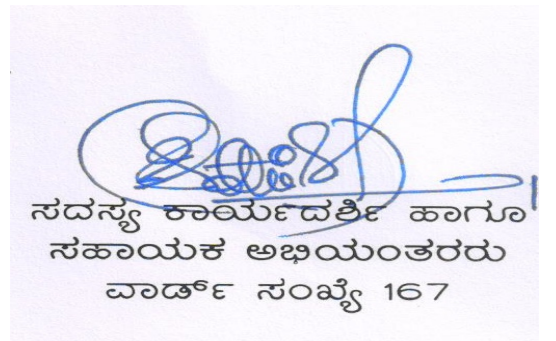 ಸದಸ್ಯ ಕಾರ್ಯದರ್ಶಿ ಹಾಗೂ
ಸಹಾಯಕ ಅಭಿಯಂತರರು
ವಾರ್ಡ್ ಸಂಖ್ಯೆ 167